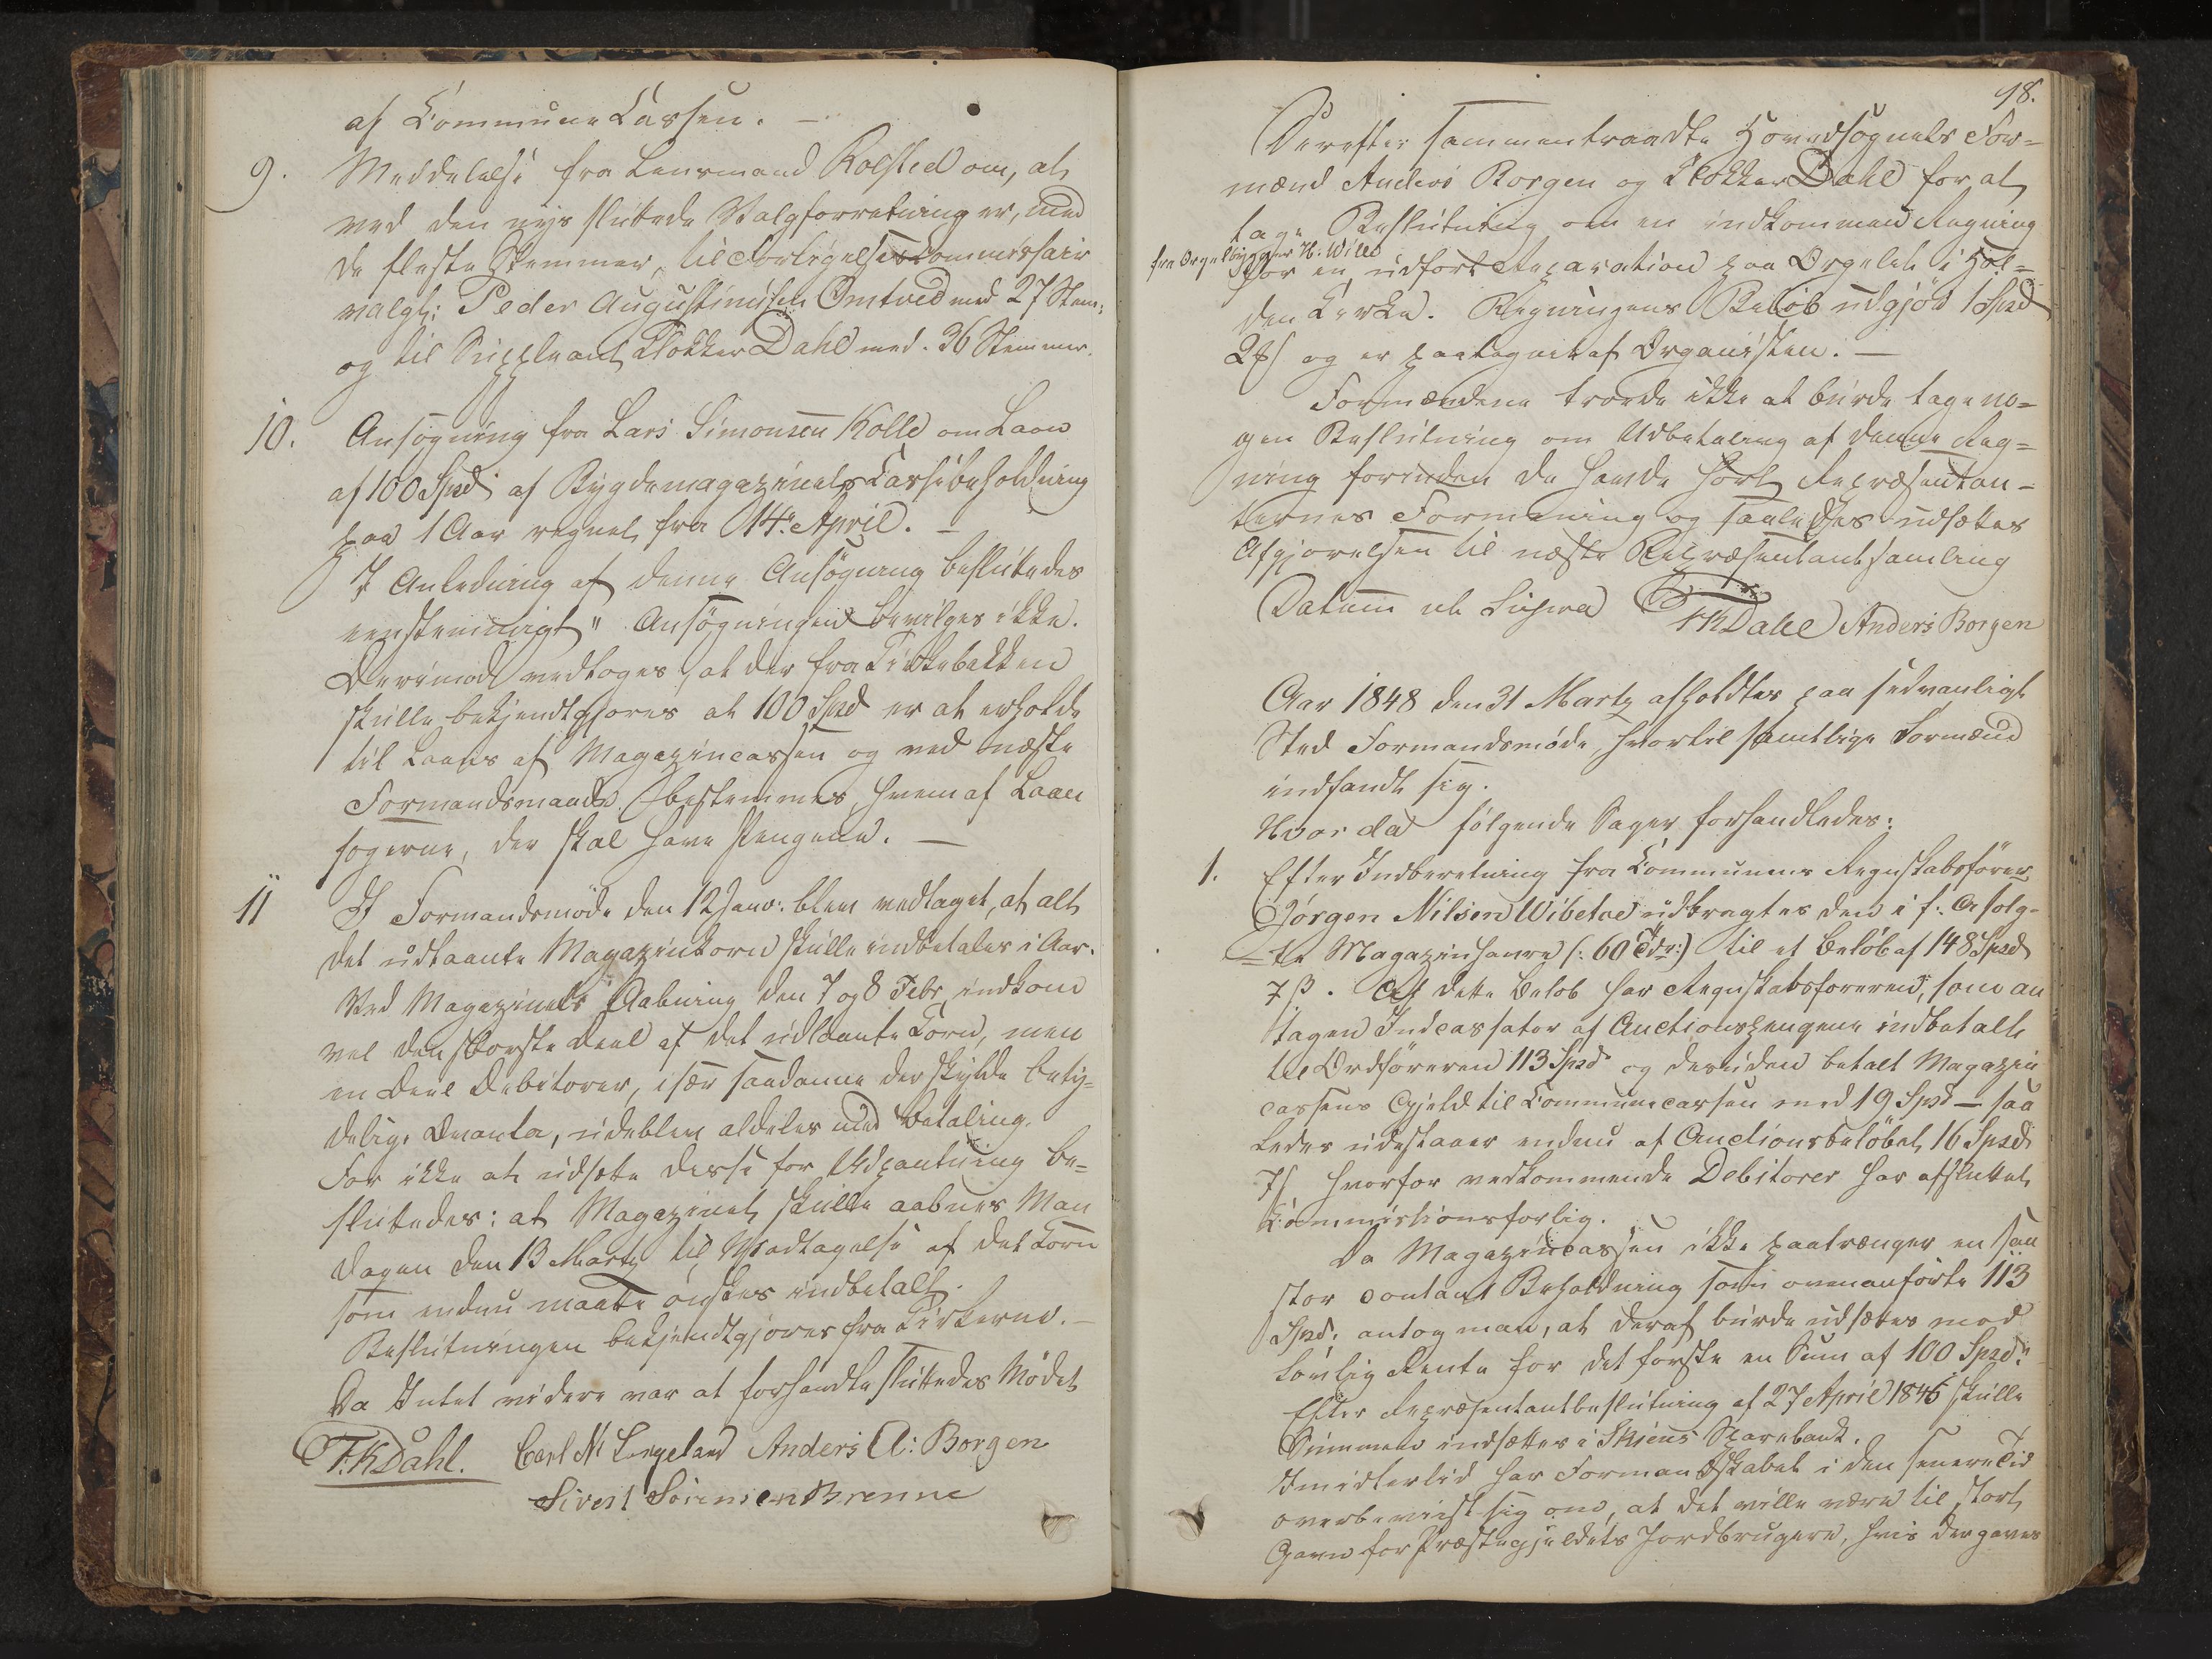 af Communecassen. —
9. Meddelelse fra Lensmand Rolsted om, at
ved den nys sluttede Valgforretning er, med
de fleste Stemmer, til Forligelsescommissair
valgt: Peder Augustinusen Omtved med 27 Stem:
og til Suppleant Klokker Dahl med 36 Stemmer.
10. Ansøgning fra Lars Simonsen Kolle om Laan
af 100 Spd af Bygdemagazinets Cassebeholdning
paa 1 Aar regnet fra 14. April. —
I Anledning af denne Ansøgning besluttedes
eenstemmigt "Ansøgningen bevilges ikke.
Derimod vedtoges, at der fra Kirkebakken
skulle bekjendtgjøres at 100 Spd er at erholde
til Laans af Magazincassen og ved næste
Formandsmøde bestemmes, hvem af Laan
søgerne, der skal have Pengene. —
11 I Formandsmøde den 12 Janv: blev vedtaget, at alt
det udlaante Magazinkorn skulle indbetales i Aar.
Ved Magazinets Aabning den 7 og 8 Febr. indkom
vel den største Deel af det udlaante Korn, men
en Deel Debitorer, især saadanne der skylde bety-
delige Qvanta, udebleve aldeles med Betaling.
For ikke at udsætte disse for Udpantning be-
sluttedes: at Magazinet skulle aabnes Man
dagen den 13 Marts til Modtagelse af det Korn
som endnu maatte ønskes indbetalt.
Beslutningen bekjendtgjøres fra Kirkerne. —
Da Intet videre var at forhandle sluttedes Mødet
F. K Dahl. Carl N: Langeland Anders A: Borgen
Sivert Sørensen Brenne
18.
Derefter sammentraadte Hovedsognets For-
mænd Anders Borgen og Klokker Dahl for at
tage Beslutning om en indkommen Regning
fra Orgelbygger H: Wille
for en udført Reparation paa Orgelet i Hol-
den Kirke. Regningens Beløb udgjør 1 Spd
2 ß og er paategnet af Organisten. —
Formændene troede ikke at burde tage no-
gen Beslutning om Udbetaling af denne Reg-
ning forinden de havde hørt Repræsentan-
ternes Formening og saaledes udsættes
Afgjørelsen til næste Repræsentantsamling
Datum ut Supra FKDahl Anders Borgen
Aar 1848 den 31 Marts afholdtes paa sedvanligt
Sted Formandsmøde, hvortil samtlige Formænd
indfandt sig.
Hvor da følgende Sager forhandledes:
1. Efter Indberetning fra Communens Regnskabsfører
Jørgen Nilsen Wibetoe udbragtes den i f: A solg-
te Magazinhavre (: 60 Tdr:) til et Beløb af 148 Spd
7 ß. Af dette Beløb har Regnskabsføreren, som an
tagen Indcassator af Auctionspengene indbetalt
til Ordføreren 113 Spd og desuden betalt Magazin
cassens Gjeld til Communecassen med 19 Spd — saa
ledes udestaaer endnu af Auctionsbeløbet 16 Spd
7 ß, hvorfor vedkommende Debitorer har afsluttet
Commissionsforlig.
Da Magazincassen ikke paatrænger en saa
stor contant Beholdning som ovenanførte 113
Spd. antog man, at deraf burde udsættes mod
lovlig Rente for det første en Sum af 100 Spd:
Efter Repræsentantbeslutning af 27 April 1846 skulle
Summen indsættes i Skiens Sparebank.
Imidlertid har Formandskabet i den senere Tid
overbeviist sig om, at det ville være til stort
Gavn for Præstegjeldets Jordbrugere, hvis der gaves